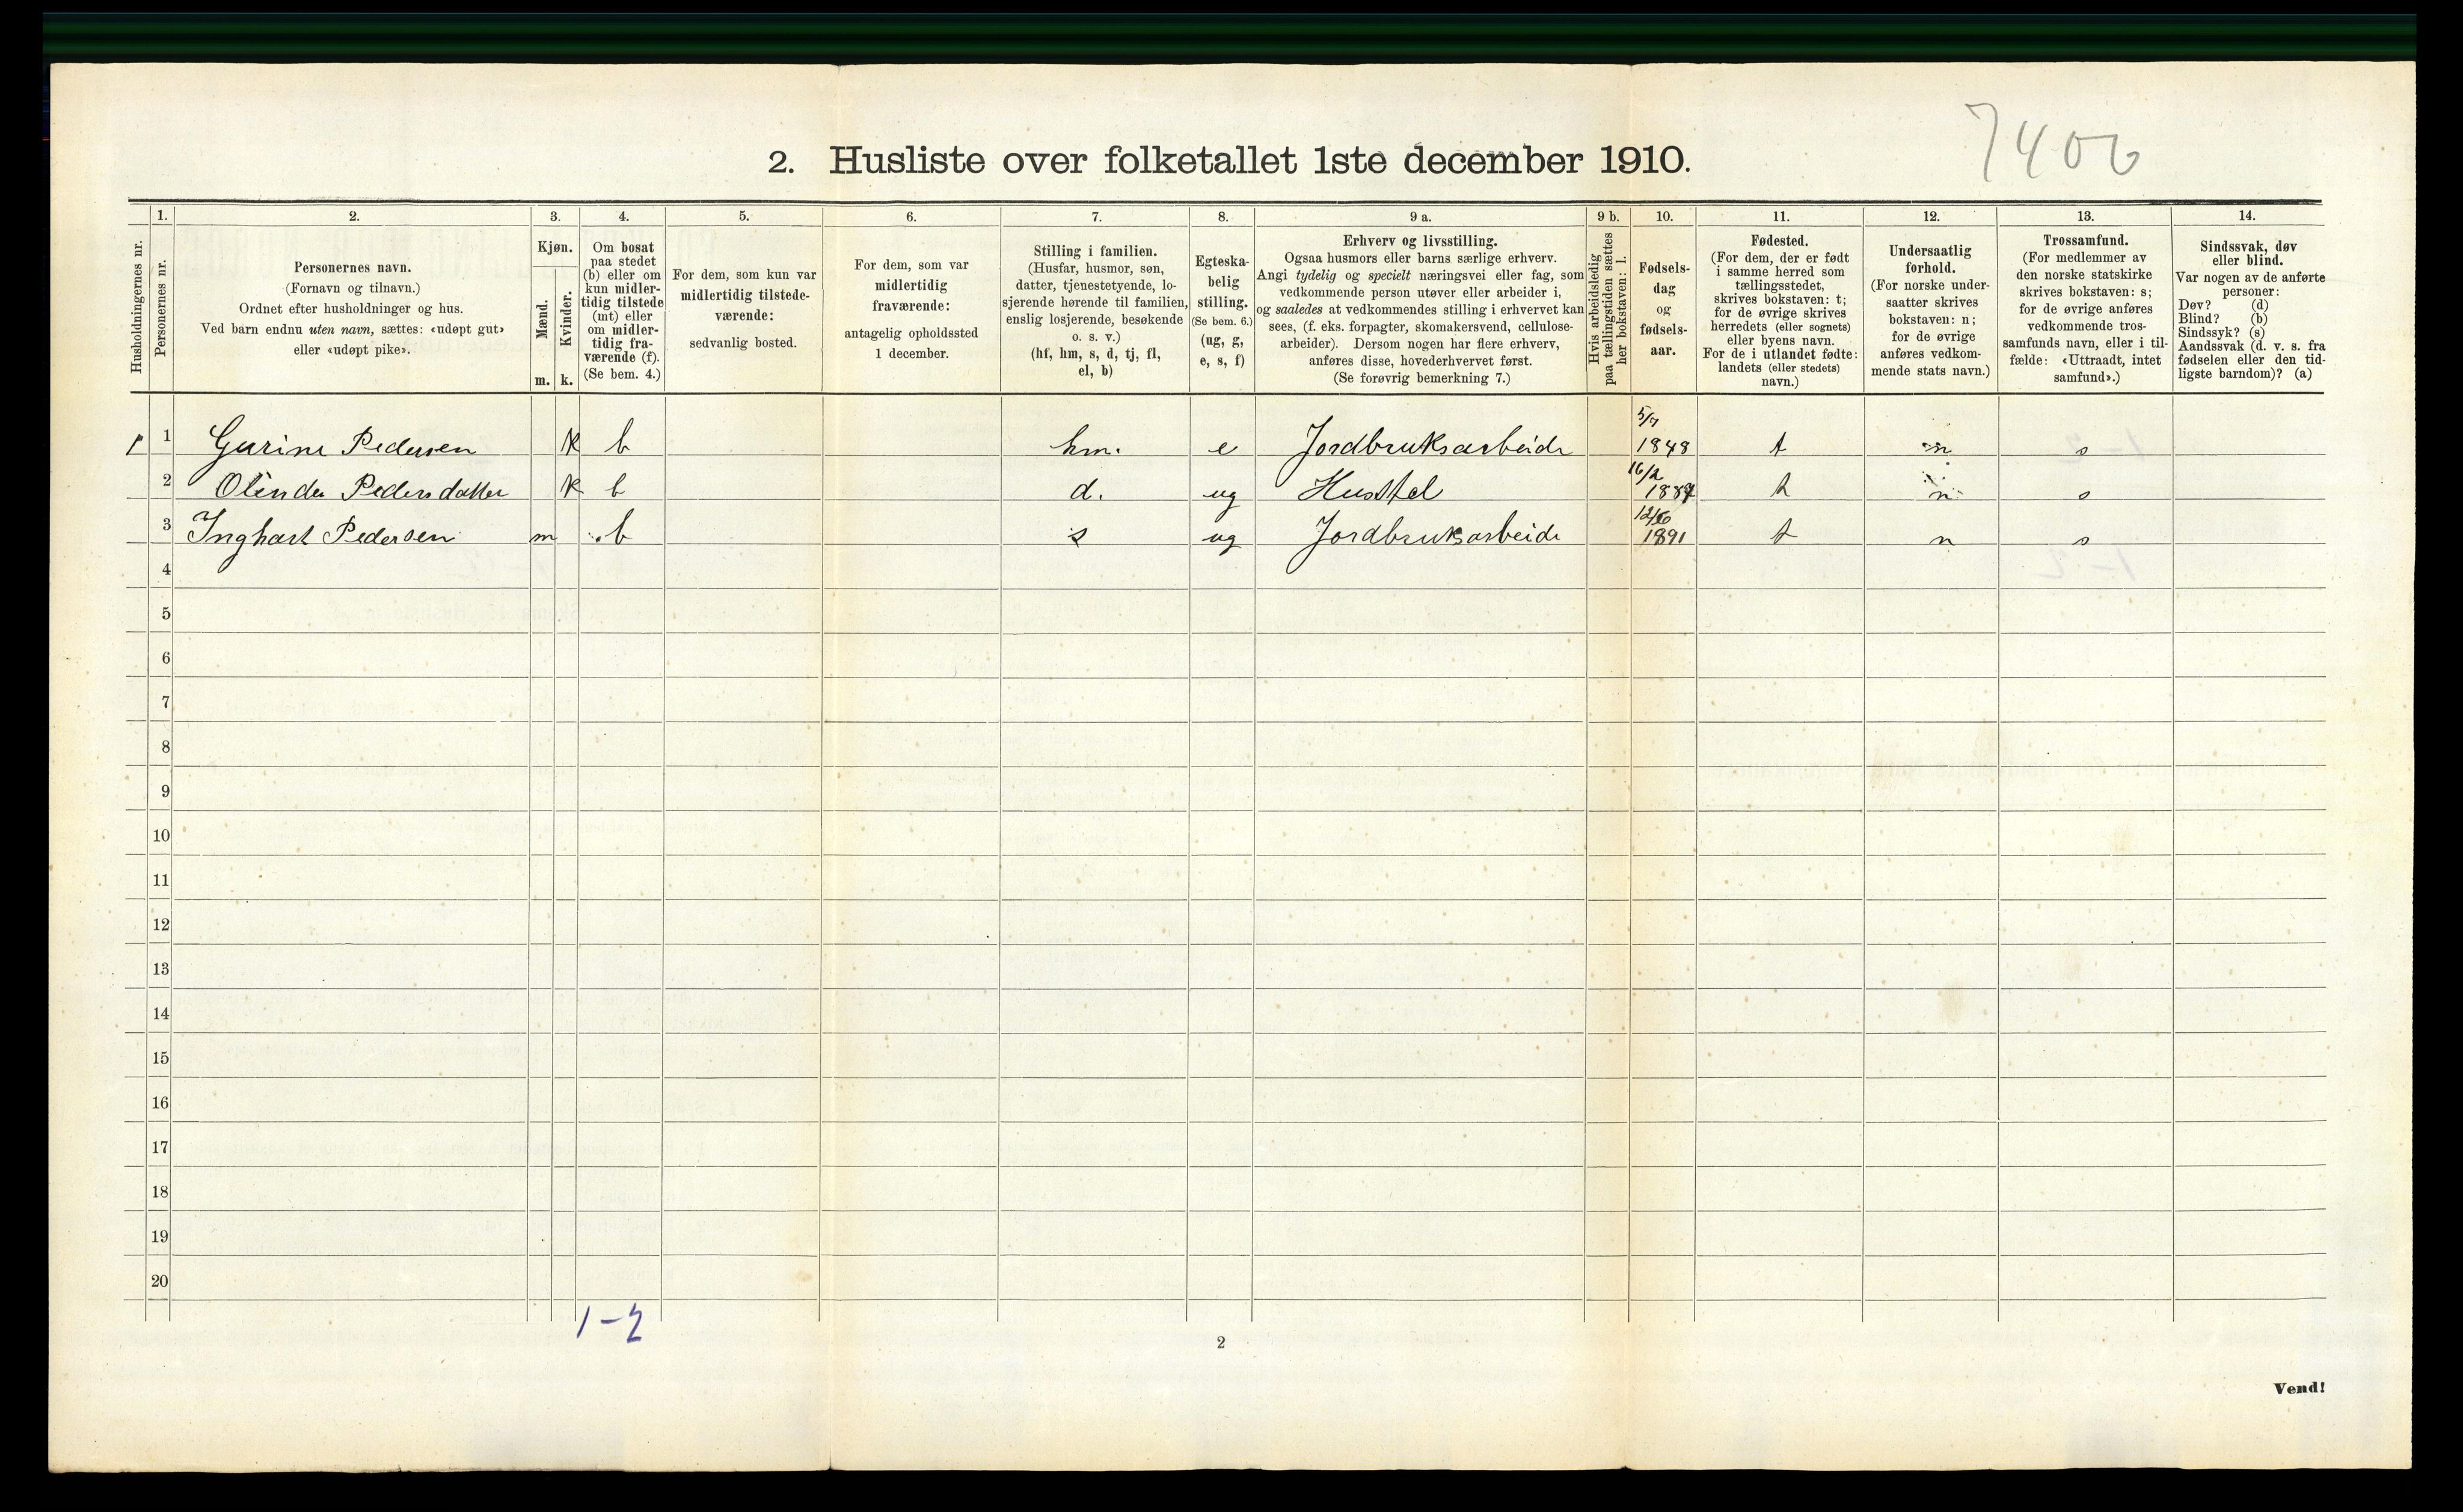 7400
2. Husliste over folketallet 1ste december 1910.
1. 2. 3. 4. 5. 6. 7. 8. 9 a. 9 b. 10. 11. 12. 13. 14.
Husholdningernes nr.
Personernes nr.
Personernes navn.
(Fornavn og tilnavn.)
Ordnet efter husholdninger og hus.
Ved barn endnu uten navn, sættes: «udøpt gut»
eller «udøpt pike».
Kjøn.
Mænd.
Kvinder.
m. k.
Om bosat
paa stedet
(b) eller om
kun midler-
tidig tilstede
(mt) eller
om midler-
tidig fra-
værende (f).
(Se bem. 4.)
For dem, som kun var
midlertidig tilstede-
værende:
sedvanlig bosted.
For dem, som var
midlertidig
fraværende:
antagelig opholdssted
1 december.
Stilling i familien.
(Husfar, husmor, søn,
datter, tjenestetyende, lo-
sjerende hørende til familien,
enslig losjerende, besøkende
o. s. v.)
(hf, hm, s, d, tj, fl,
el, b)
Egteska-
belig
stilling.
(Se bem. 6.)
(ug, g,
e, s, f)
Erhverv og livsstilling.
Ogsaa husmors eller barns særlige erhverv.
Angi tydelig og specielt næringsvei eller fag, som
vedkommende person utøver eller arbeider i,
og saaledes at vedkommendes stilling i erhvervet kan
sees, (f. eks. forpagter, skomakersvend, cellulose-
arbeider). Dersom nogen har flere erhverv,
anføres disse, hovederhvervet først.
(Se forøvrig bemerkning 7.)
Hvis arbeidsledig
paa tællingstiden sættes
her bokstaven: l.
Fødsels-
dag
og
fødsels-
aar.
Fødested.
(For dem, der er født
i samme herred som
tællingsstedet,
skrives bokstaven: t;
for de øvrige skrives
herredets (eller sognets)
eller byens navn.
For de i utlandet fødte:
landets (eller stedets)
navn.)
Undersaatlig
forhold.
(For norske under-
saatter skrives
bokstaven: n;
for de øvrige
anføres vedkom-
mende stats navn.)
Trossamfund.
(For medlemmer av
den norske statskirke
skrives bokstaven: s;
for de øvrige anføres
vedkommende tros-
samfunds navn, eller i til-
fælde: «Uttraadt, intet
samfund».)
Sindssvak, døv
eller blind.
Var nogen av de anførte
personer:
Døv? (d)
Blind? (b)
Sindssyk? (s)
Aandssvak (d. v. s. fra
fødselen eller den tid-
ligste barndom)? (a)
1 1 Gurine Pedersen k b hm. e Jordbruksarbeide 5/7 1848 t n s
2 Olinda Pedersdatter k b d. ug Husstel 16/2 t n s
3 Inghart Pedersen m b s ug Jordbruksarbeide 1891 t n s
4
5
6
7
8
9
10
11
12
13
14
15
16
17
18
19
20
1-2
2
Vend!